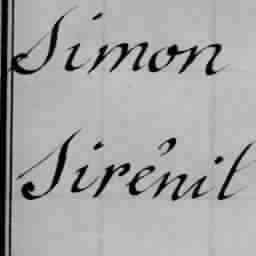 Simon
Sirénil